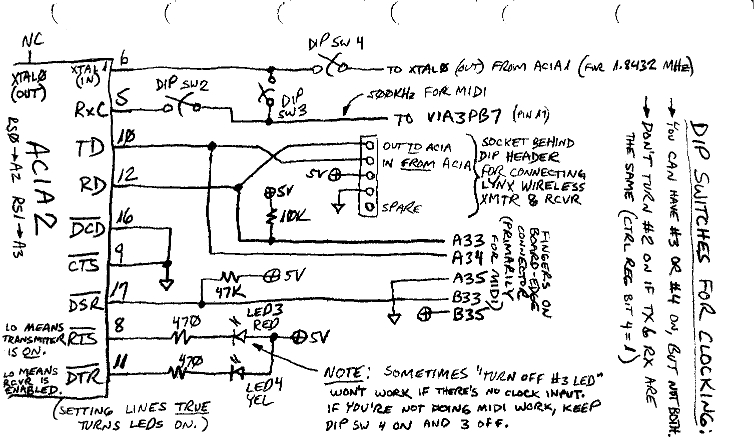 NC
XTAL0
(OUT)
XTAL1
(IN)
6
DIP SW 4
TO XTAL0 (OUT) FROM ACIA1 (FOR 1.8432 MHz)
RxC
5
DIP SW2
DIP
SW3
500KHz FOR MIDI
TO VIA3PB7 (PIN 17)
ACIA2
RS0→A2 RS1→A3
TD
10
RD
12
OUT TO ACIA
IN FROM ACIA
5V
SPARE
SOCKET BEHIND
DIP HEADER
FOR CONNECTING
LYNX WIRELESS
XMTR & RCVR
5V
10K
DCD
16
CTS
9
DSR
17
47K
5V
A33
A34
A35
B33
B35
FINGERS ON
BOARD-EDGE
CONNECTOR
(PRIMARILY
FOR MIDI)
LO MEANS
TRANSMITTER
IS ON.
RTS
8
470
LED3
RED
5V
LO MEANS
RCVR IS
ENABLED.
DTR
11
470
LED4
YEL
(SETTING LINES TRUE
TURNS LEDS ON.)
NOTE: SOMETIMES "TURN OFF #3 LED"
WON'T WORK IF THERE'S NO CLOCK INPUT.
IF YOU'RE NOT DOING MIDI WORK, KEEP
DIP SW 4 ON AND 3 OFF.
DIP SWITCHES FOR CLOCKING:
→ YOU CAN HAVE #3 OR #4 ON, BUT NOT BOTH.
→ DON'T TURN #2 ON IF TX & RX ARE
THE SAME (CTRL REG BIT 4=1)